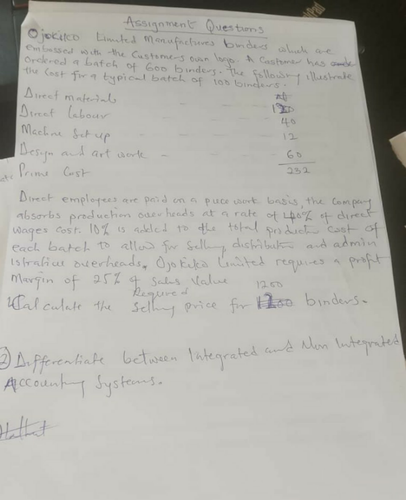 Assignment Questions
① Ojokilko Limited Manufactures binders which are
embossed with the Customers own logo. A Customer has
Ordered a batch of 600 binders. the following illustrate
the Cost for a typical batch of 100 binders.
Direct materials 120
Direct Labour 40
Machine Set up 12
Design and art work - 60
Prime Cost 232
Direct employees are paid on a piece work basis, the Company
absorbs production overheads at a rate of 40% of direct
wages Cost. 10% is added to the total production Cost of
each batch to allow for Selling, distribution and admin
istrative overheads. Ojokilko Limited requires a profit
Margin of 25% of Sales Value
Required 1200
Calculate the Selling price for binders.
② Differentiate between Integrated and Non Integrated
Accounting Systems.